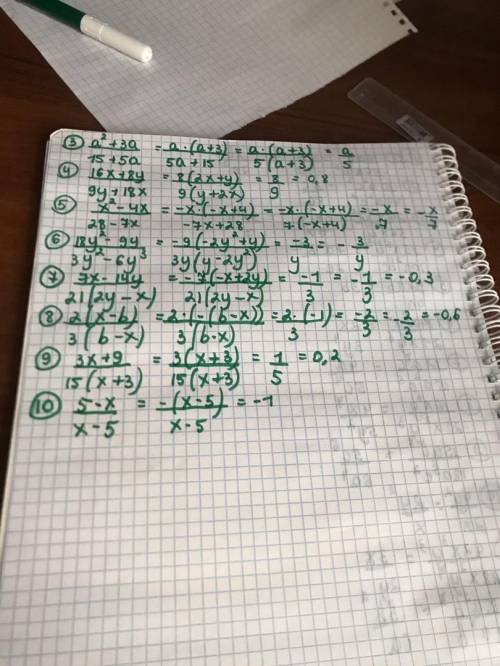 ③ a²+3a/15+5a = a·(a+3)/5a+15 = a·(a+3)/5(a+3) = a/5
④ 16x+8y/9y+18x = 8(2x+y)/9(y+2x) = 8/9 = 0,8
⑤ x²-4x/28-7x = -x·(-x+4)/-7x+28 = -x·(-x+4)/7(-x+4) = -x/7 = -x/7
⑥ 18y²-9y/3y²-6y³ = -9(-2y²+y)/3y(y-2y²) = -3/y = -3/y
⑦ 7x-14y/21(2y-x) = -7(-x+2y)/21(2y-x) = -1/3 = -1/3 = -0,3
⑧ 2(x-b)/3(b-x) = 2·(-(b-x))/3(b-x) = 2·(-1)/3 = -2/3 = -2/3 = -0,6
⑨ 3x+9/15(x+3) = 3(x+3)/15(x+3) = 1/5 = 0,2
⑩ 5-x/x-5 = -(x-5)/x-5 = -1